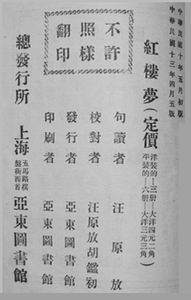 中華民國十年五月初版
中華民國十三年四月五版
紅樓夢(定價 洋裝的—三册—大洋四元二角
平裝的—六册—大洋三元三角)
句讀者 汪原放
校對者 汪原放 胡鑑初
發行者 亞東圖書館
印刷者 亞東圖書館
不許
照樣
翻印
總發行所 上海 五馬路棋
盤街西首 亞東圖書館